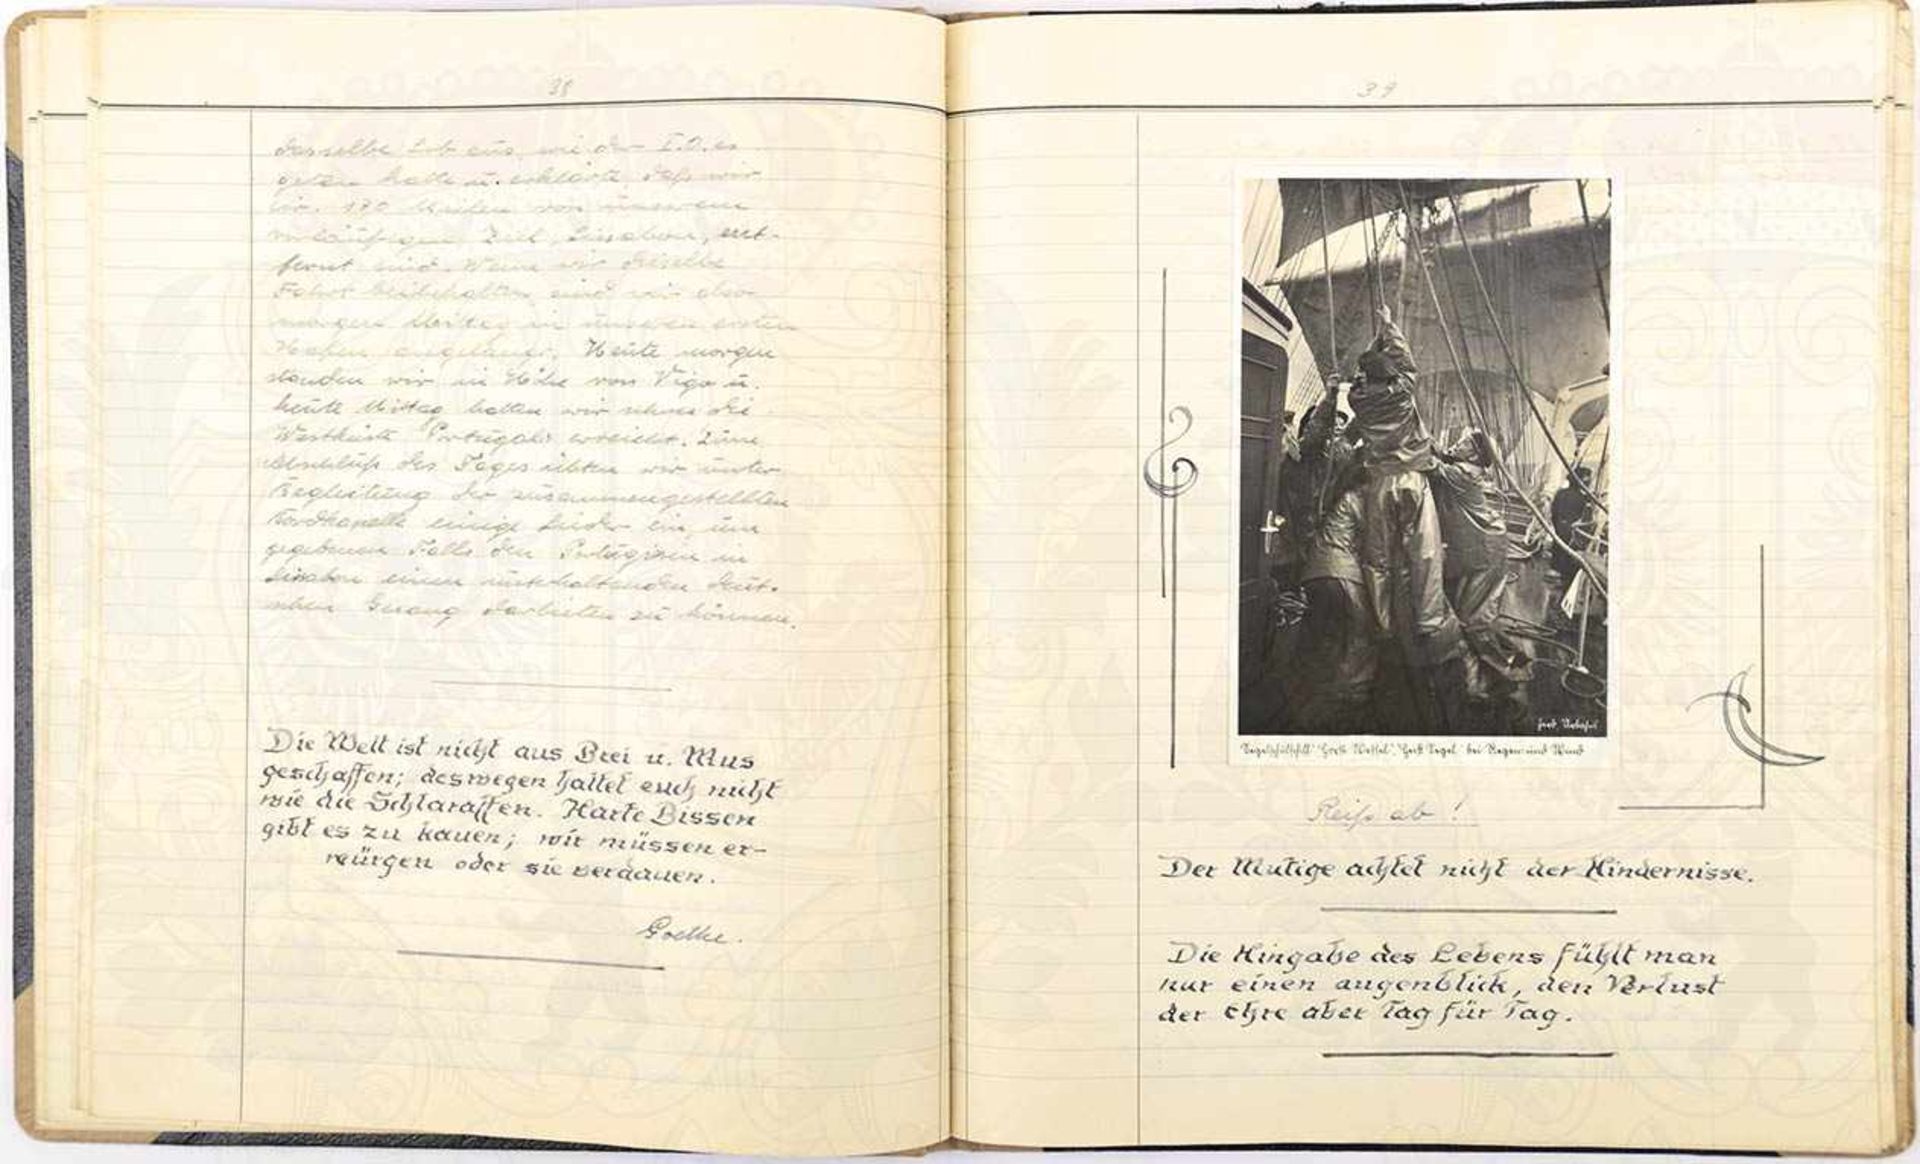 38
dasselbe Lob aus, wie der I.O. es
getan hatte u. erklärte, daß wir
170 Meilen von unserem
vorläufigen Ziel, Lissabon, ent-
fernt sind. Wenn wir dieselbe
Fahrt beibehalten, sind wir also
morgen Mittag in unseren ersten
Hafen eingelaufen. Heute morgen
standen wir in Höhe von Vigo u.
heute Mittag hatten wir schon die
Westküste Portugals erreicht. Zum
Abschluß des Tages übten wir unter
Begleitung der zusammengestellten
Bordkapelle einige Lieder ein, um
gegebenen Falls den Portugiesen in
Lissabon einen unterhaltenden deut-
schen Gesang darbieten zu können.
Die Welt ist nicht aus Brei u. Mus
geschaffen; deswegen haltet euch nicht
wie die Schlaraffen. Harte Bissen
gibt es zu kauen; wir müssen er-
würgen oder sie verdauen.
Goethe.
39
Segelschulschiff "Horst Wessel". "Heiß Segel" bei Regen und Wind
Reiß ab!
Der Mutige achtet nicht der Hindernisse.
Die Hingabe des Lebens fühlt man
nur einen augenblick, den Verlust
der Ehre aber Tag für Tag.